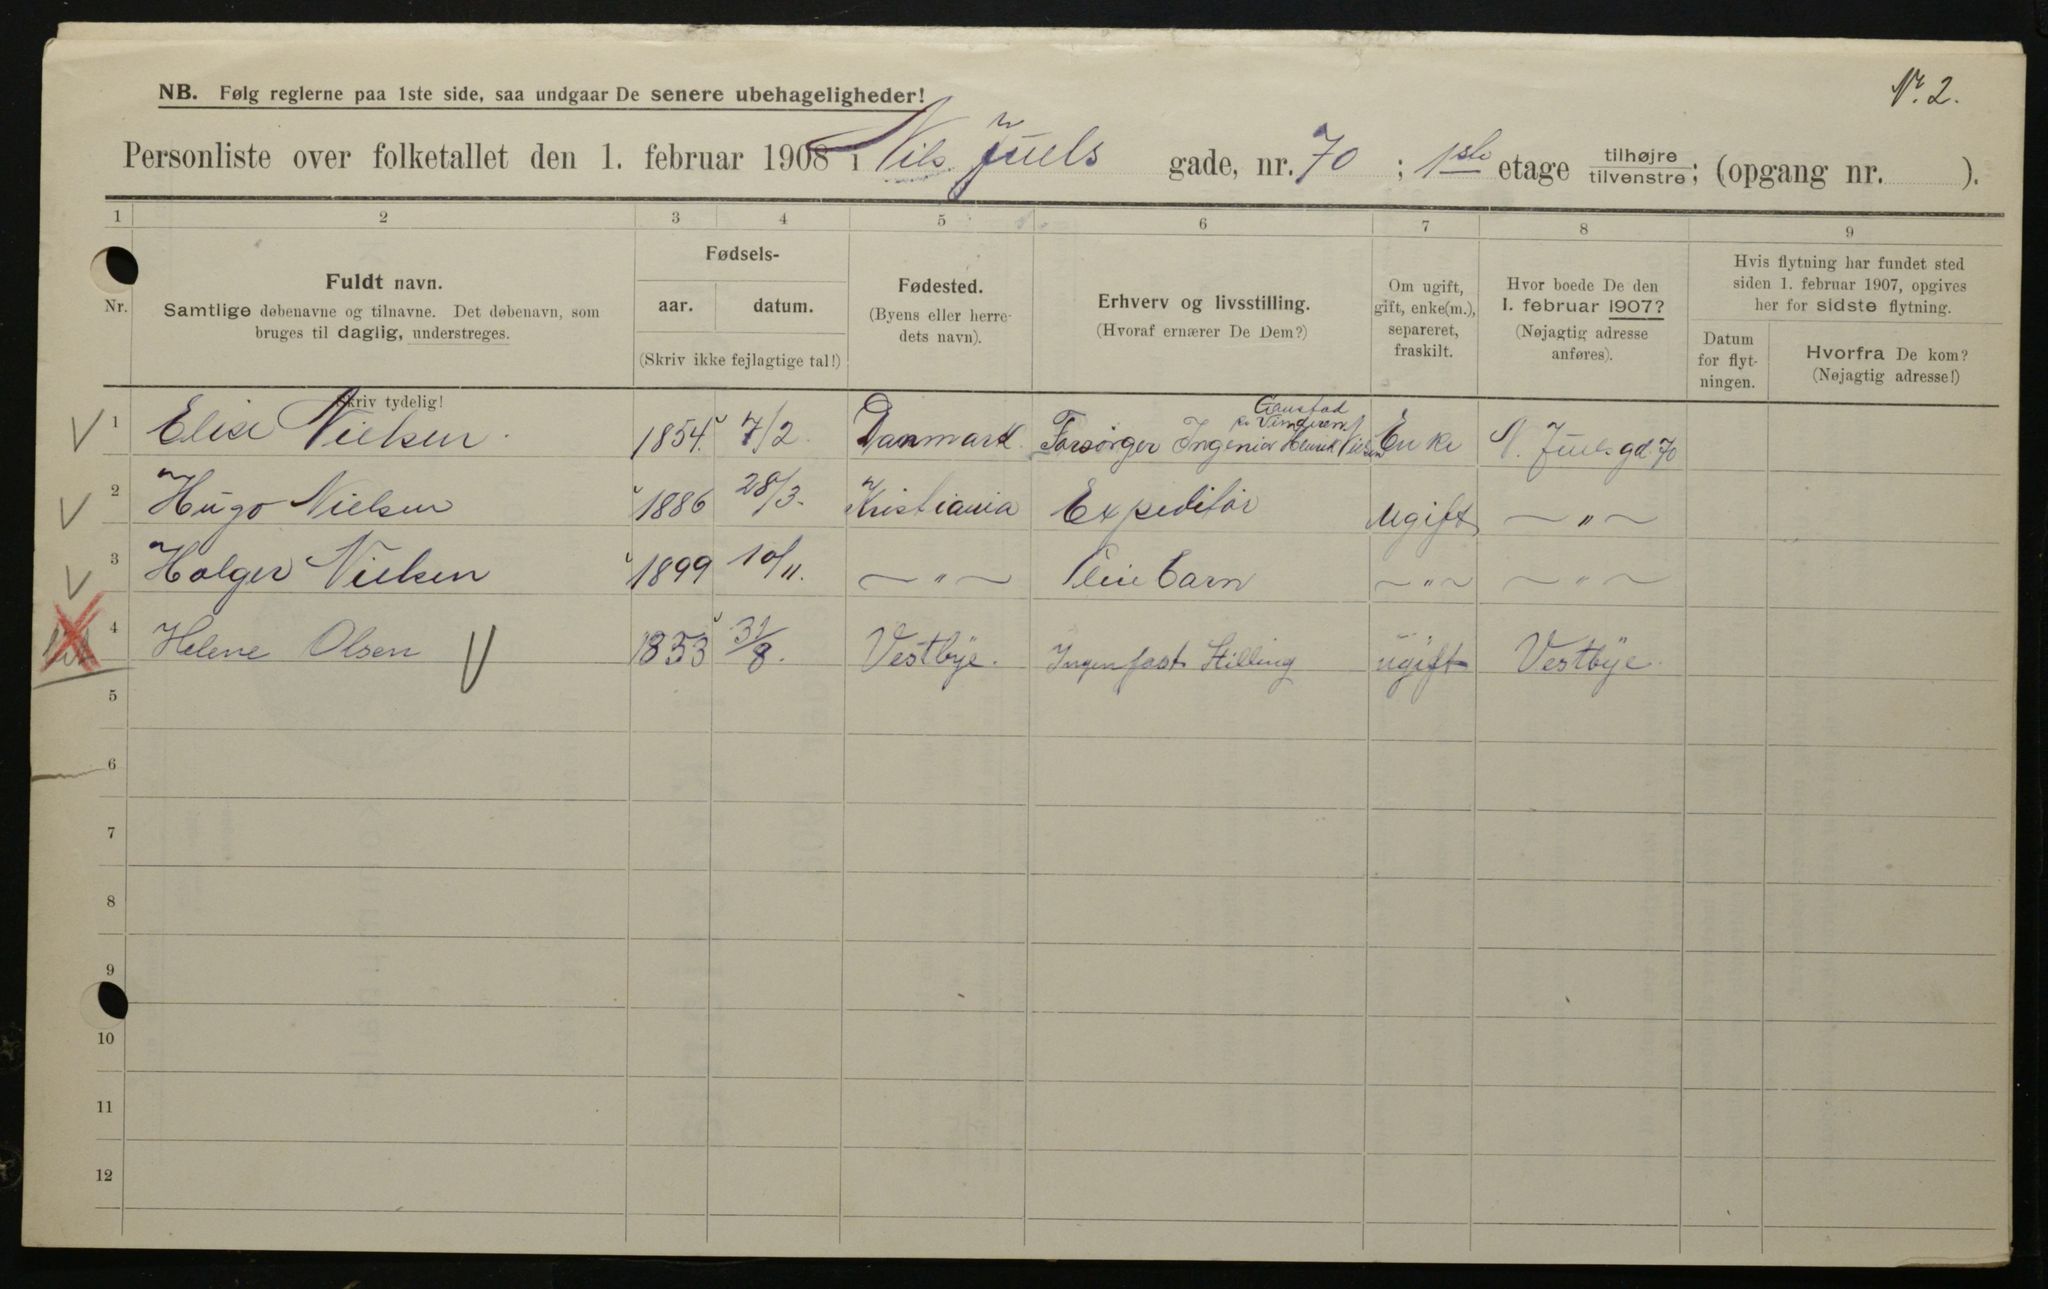 Nr. 2.
NB. Følg reglerne paa 1ste side, saa undgaar De senere ubehageligheder!
Personliste over folketallet den 1. februar 1908 i Nils Juels gade, nr. 70 ; 1ste etage tilhøjre tilvenstre; (opgang nr. ).
1 2 3 4 5 6 7 8 9
Nr.
Fuldt navn.
Samtlige døbenavne og tilnavne. Det døbenavn, som
bruges til daglig, understreges.
Fødsels-
aar. datum.
(Skriv ikke fejlagtige tal!)
Fødested.
(Byens eller herre-
dets navn).
Erhverv og livsstilling.
(Hvoraf ernærer De Dem?)
Om ugift,
gift, enke(m.),
separeret,
fraskilt.
Hvor boede De den
1. februar 1907?
(Nøjagtig adresse
anføres).
Hvis flytning har fundet sted
siden 1. februar 1907, opgives
her for sidste flytning.
Datum
for flyt-
ningen.
Hvorfra De kom?
(Nøjagtig adresse!)
Skriv tydelig!
Gaustad
pr Vinderen
1 Elise Nielsen. 1854. 7/2. Danmark. Forsørger Ingeniør Henrik Nielsen Enke N. Juels gd. 70
2 Hugo Nielsen 1886 28/3. Kristiania Expeditør Ugift — " —
3 Holger Nielsen 1899 10/11. — " — Pleiebarn — " — — " —
4 Helene Olsen 1853 31/8. Vestbye. Ingen fast Stilling ugift Vestbye.
5
6
7
8
9
10
11
12